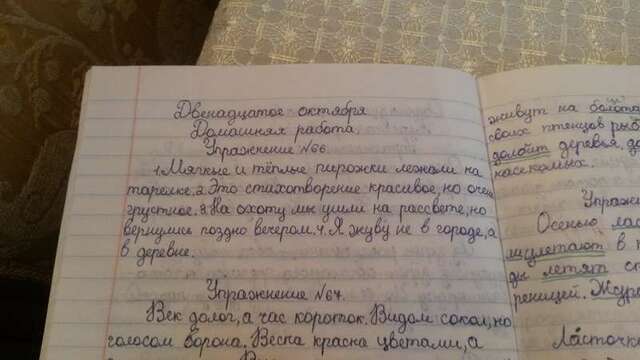 Двенадцатое октября
Домашняя работа
Упражнение №66.
1.Мягкие и тёплые пирожки лежали на
тарелке.2.Это стихотворение красивое, но очень
грустное.3.На охоту мы ушли на рассвете, но
вернулись поздно вечером.4.Я живу не в городе, а
в деревне.
Упражнение №67.
Век долог, а час короток. Видом сокол, но
голосом ворона. Весна красна цветами, а
живут на болота
своих птенцов рыб
долбит деревья, до
насекомых.
Упражн
Осенью лас
прилетают в
ды летят
реницей. Жур
Ласточк